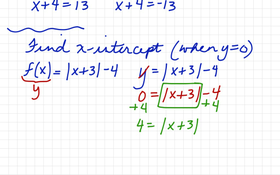 x+4 = 13    x+4 = -13
Find x-intercept (when y=0)
f(x) = |x+3| - 4    y = |x+3| - 4
y    0 = |x+3| - 4
+4    +4
4 = |x+3|